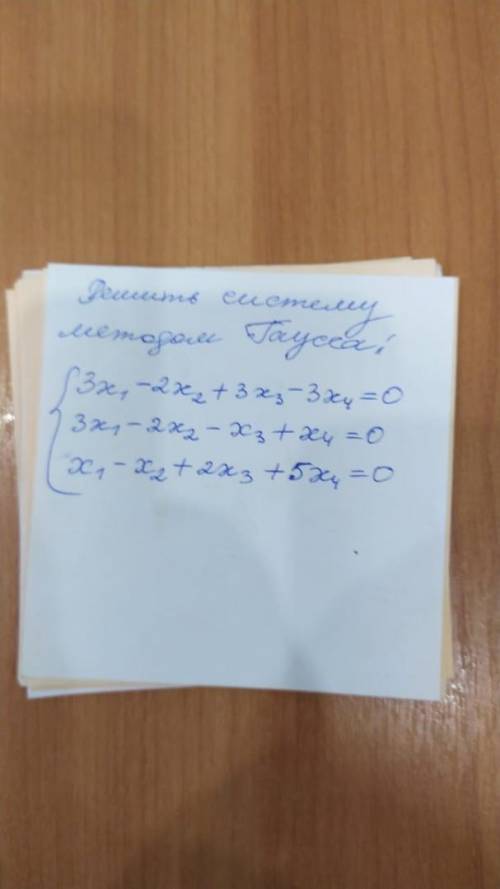 Решить систему
методом Гаусса:
3x₁ - 2x₂ + 3x₃ - 3x₄ = 0
3x₁ - 2x₂ - x₃ + x₄ = 0
x₁ - x₂ + 2x₃ + 5x₄ = 0